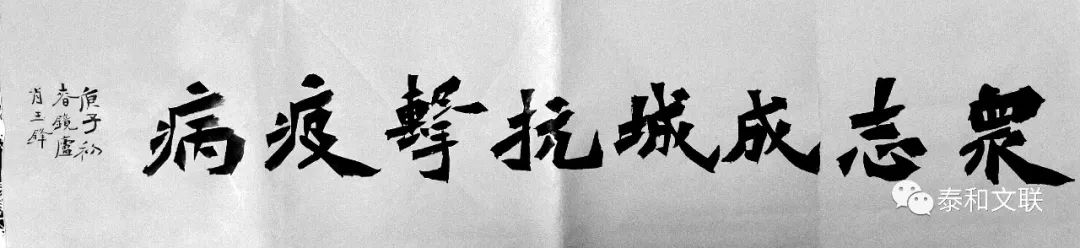 眾志成城抗擊疫病
庚子初
春鏡盧
肖王鋒
泰和文联